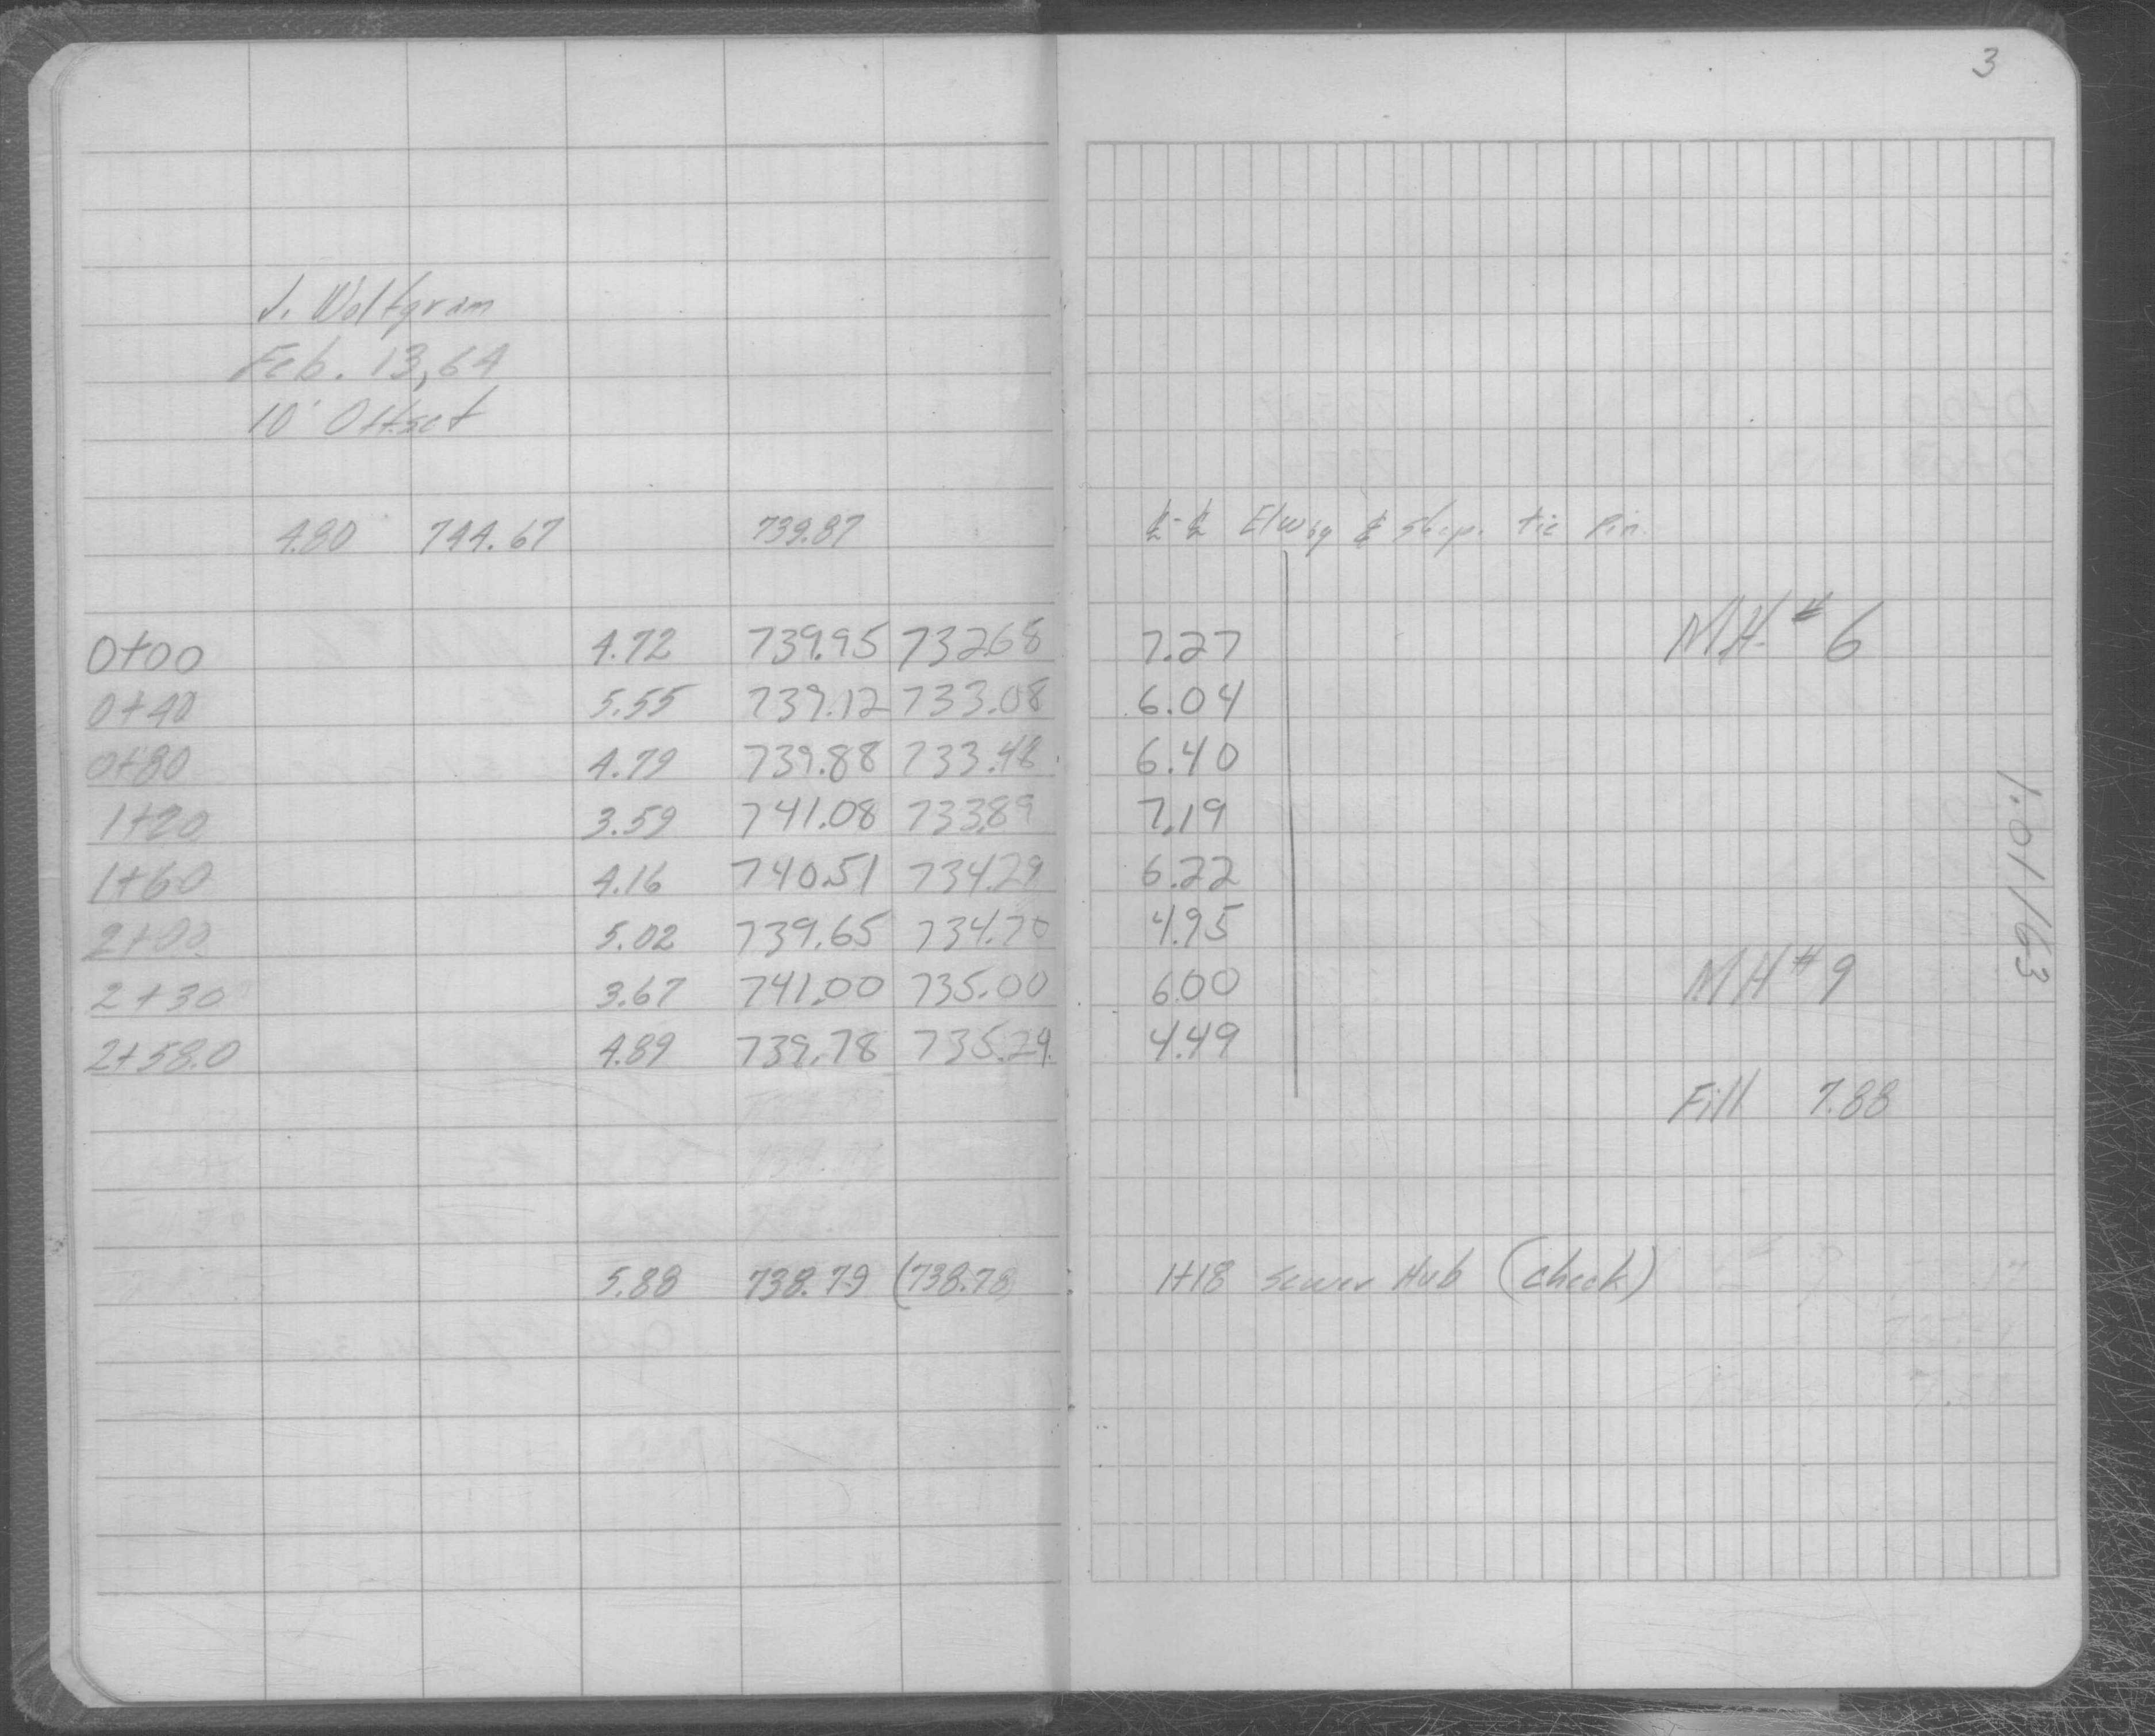 3
J. Wolfgram
Feb. 13, 64
10' Offset
4.80 744.67 739.87 ℄-℄ Elwby & Shep. tie Pin.
0+00 4.72 739.95 732.68 7.27 MH. #6
0+40 5.55 739.12 733.08 6.04
0+80 4.79 739.88 733.48 6.40
1+20 3.59 741.08 733.89 7.19
1+60 4.16 740.51 734.29 6.22
2+00 5.02 739.65 734.70 4.95
2+30 3.67 741.00 735.00 6.00 MH #9
2+58.0 4.89 739.78 735.29 4.49
Fill 7.88
5.88 738.79 (738.78) 1+18 Sewer Hub (check)
1.01163